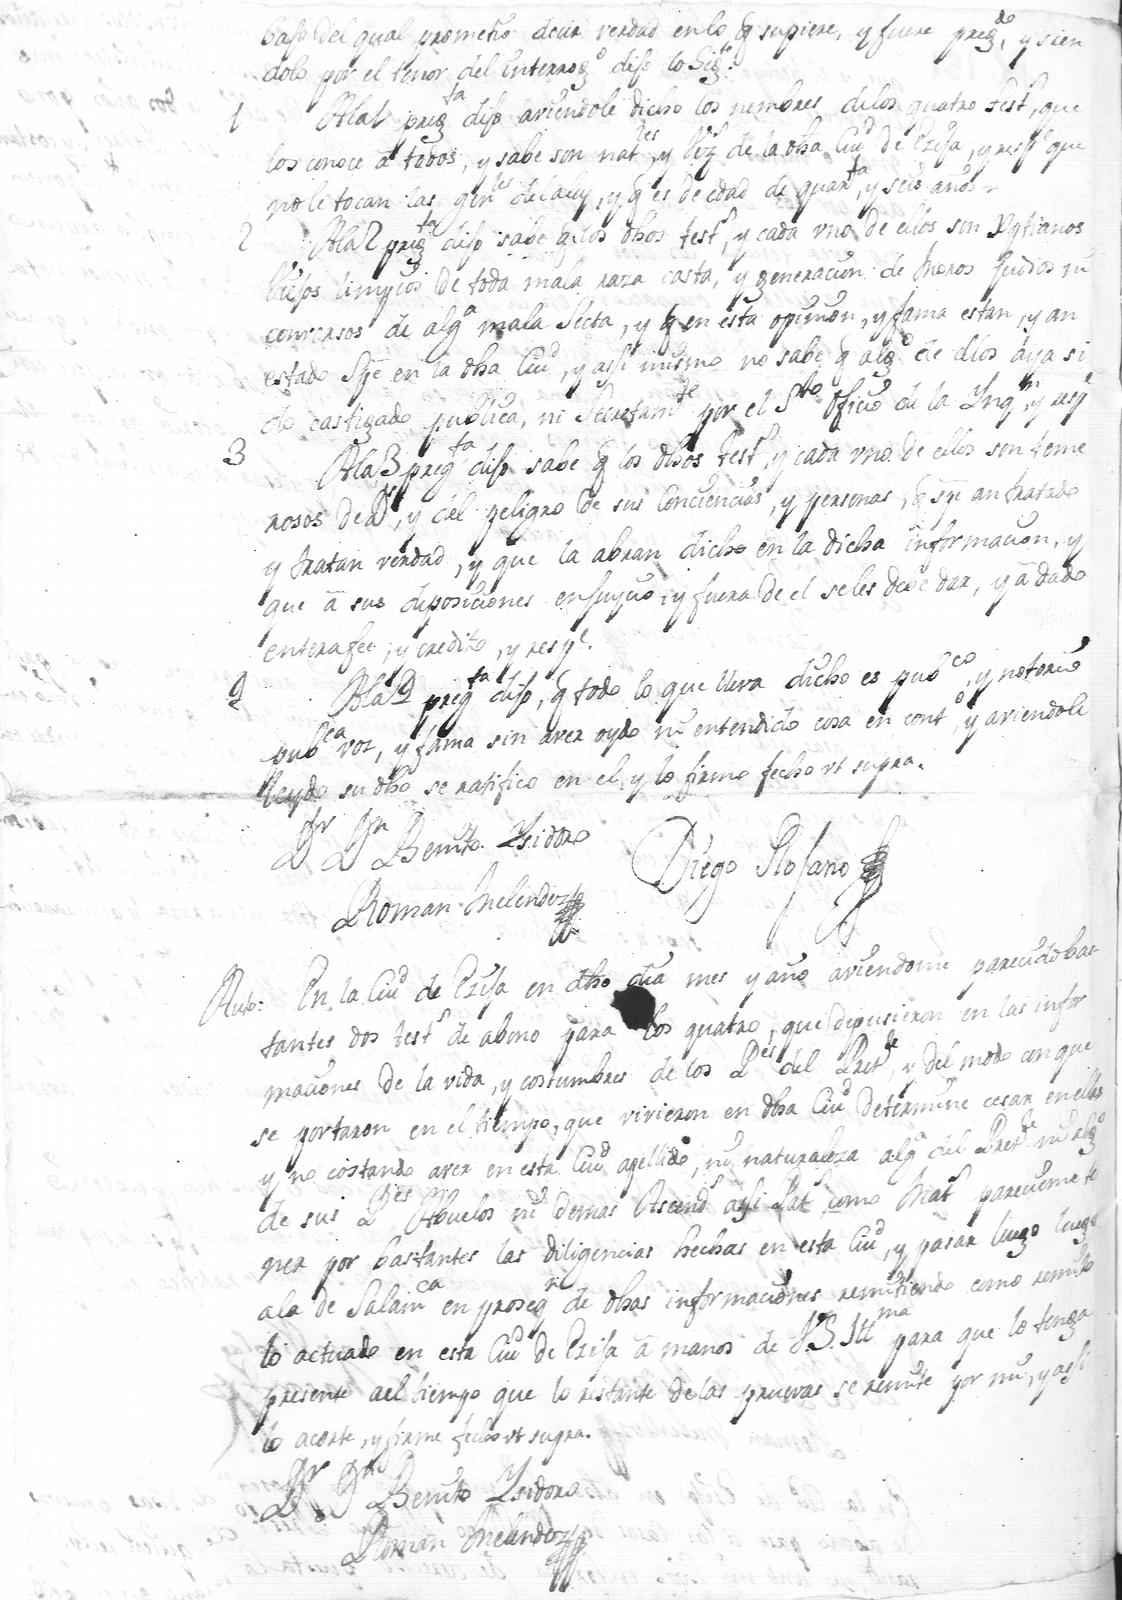 baso del qual prometio decir verdad en lo q supiere, y fuere preg.do, y sien
dolo por el tenor del interrog.o dijo lo Sig.te:
1 Ala 1 preg.ta dijo aviendole dicho los nombres delos quatro test.s, que
los conoce â todos, y sabe son nat.les, y vez.s de la dha Ciu.d de Ezija, y resp.e que
no le tocan las gen.les dela ley, y q es de edad de quar.ta, y seis años.
2 Ala 2 preg.ta dijo sabe q los dhos test.s, y cada vno de ellos son Xptianos
biejos limpios de toda mala raza casta, y generacion de Moros Judios ni
conversos de alg.a mala Secta, y q en esta opinion, y fama estan, y an
estado Spre en la dha Ciu.d, y assi mismo no sabe q alg.o de ellos aya si
do castigado publica, ni Secretam.te por el S.to Oficio de la Ynq.n, y resp.e
3 Ala 3 preg.ta dijo sabe q los dhos test.s, y cada vno de ellos son teme
rosos de D.s, y del peligro de sus Conciencias, y personas, q spre an tratado
y tratan verdad, y que la abran dicho en la dicha informacion, y
que â sus deposiciones en juycio, y fuera de el se les debe dar, y â dado
entera fee, y credito, y resp.e.
4 Ala 4 preg.ta dijo, q todo lo que lleva dicho es pub.co, y notorio
pub.ca voz, y fama sin aver oydo ni entendido cosa en cont.o, y aviendole
leydo su dho se ratifico en el, y lo firmo fecho vt supra.
D.r D.n Benito Ysidoro Diego
Roman Melendez
Auto: En la Ciu.d de Ezija en dho dia mes y año aviendome parecido bas-
tantes dos test.s de abono para los quatro, que depusieron en las infor
maciones de la vida, y costumbres de los P.es del Pret.te, y del modo con que
se portaron en el tiempo, que vivieron en dha Ciu.d determine cesar en ellas
y no costando aver en esta Ciu.d apellido, ni naturaleza alg.a del Pret.te ni alg.o
de sus P.es Abuelos ni demas Ascend.s assi Pat.s como Mat.s pareciome te
ner por bastantes las diligencias hechas en esta Ciu.d, y pasar luego luego
ala de Salam.ca en proseq.n de dhas informaciones remitiendo como remito
lo actuado en esta Ciu.d de Ezija â manos de V.S. Ill.ma para que lo tenga
presente ael tiempo que lo restante de las pruevas se remite por mi, y assi
lo acorde, y firme fecho vt supra.
D.r D.n Benito Ysidoro
Roman Melendez